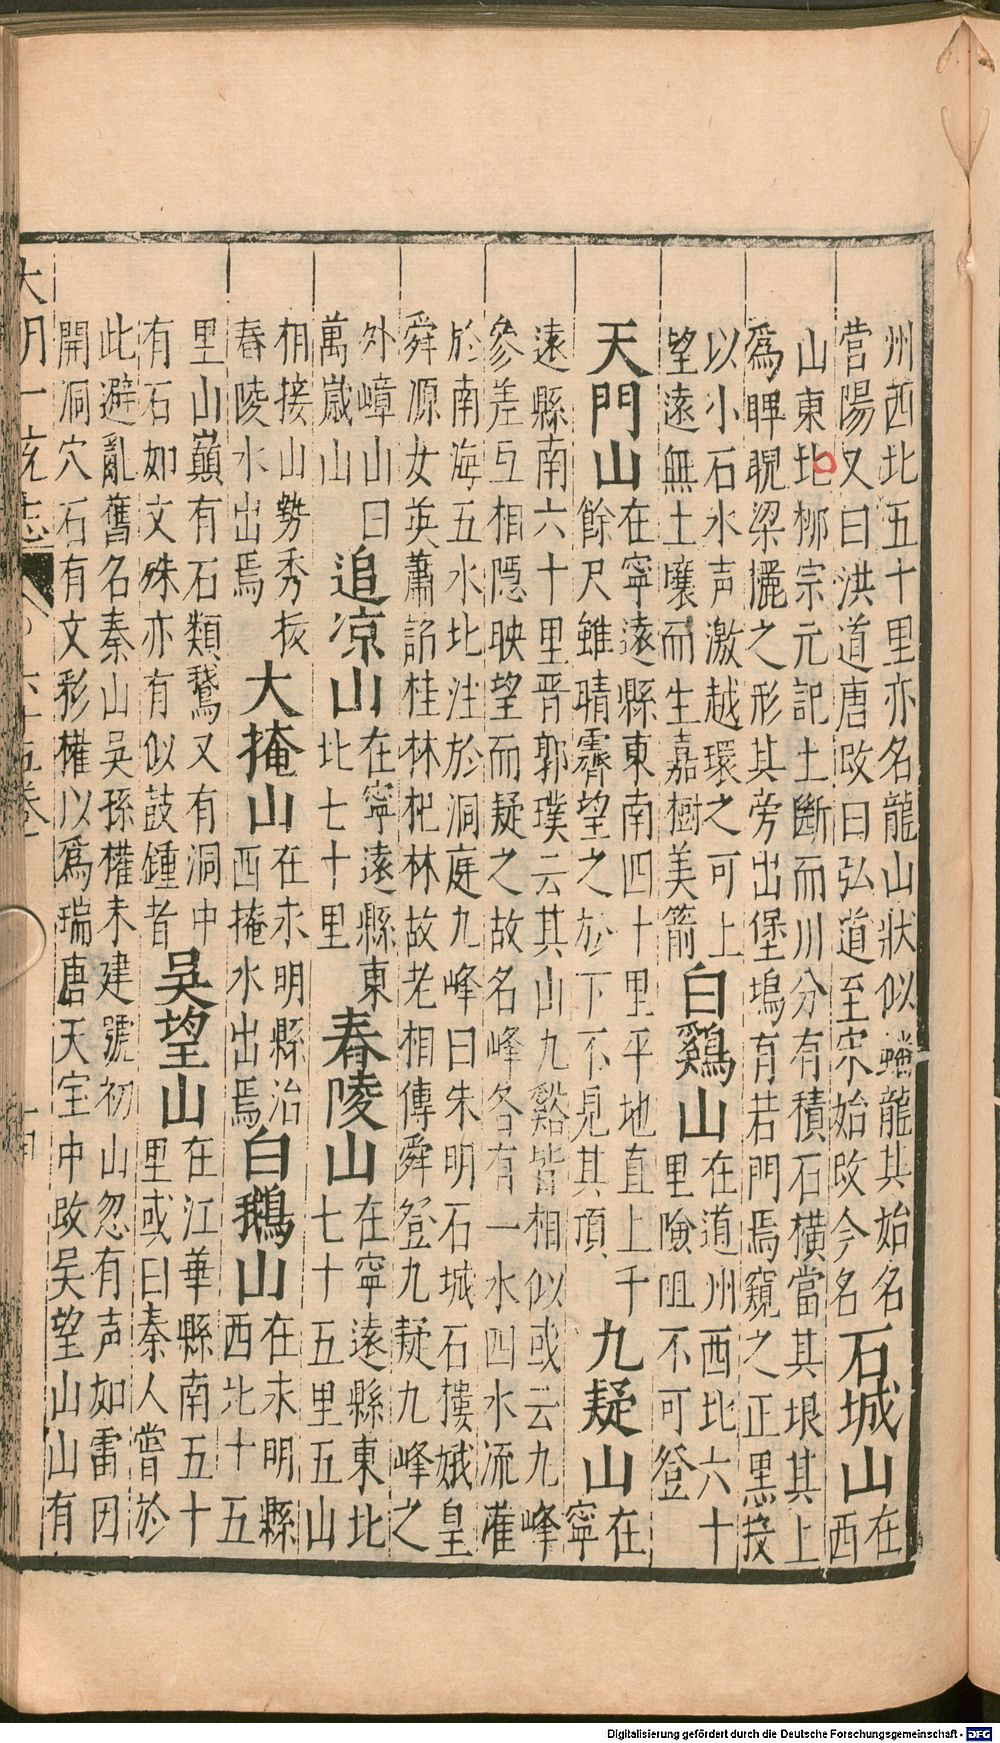 州西北五十里亦名龍山狀似蟠龍其始名
營陽又曰洪道唐改曰弘道至宋始改今名
石城山
在
西
山東北柳宗元記土斷而川分有積石橫當其垠其上
爲睥睨梁欐之形其旁出堡塢有若門焉窺之正黑投
以小石水声激越環之可上
望遠無土壤而生嘉樹美箭
白鷄山
在道州西北六十
里險阻不可登
天門山
在寧遠縣東南四十里平地直上千
餘尺雖晴霽望之於下不見其頂
九疑山
在
寧
遠縣南六十里晉郭璞云其山九谿皆相似或云九峰
參差互相隱映望而疑之故名峰各有一水四水流灌
於南海五水北注於洞庭九峰曰朱明石城石樓娥皇
舜源女英蕭韶桂林杞林故老相傳舜登九疑九峰之
外嶂山曰
萬歲山
追凉山
在寧遠縣東
北七十里
舂陵山
在寧遠縣東北
七十五里五山
相接山勢秀拔
舂陵水出焉
大掩山
在永明縣治
西掩水出焉
白鵝山
在永明縣
西北十五
里山巔有石類鵞又有洞中
有石如文殊亦有似鼓鍾者
吳望山
在江華縣南五十
里或曰秦人嘗於
此避亂舊名秦山吳孫權未建號初山忽有声如雷因
開洞穴石有文彩權以爲瑞唐天宝中改吴望山山有
大明一統志 六十五卷
Digitalisierung gefördert durch die Deutsche Forschungsgemeinschaft - DFG